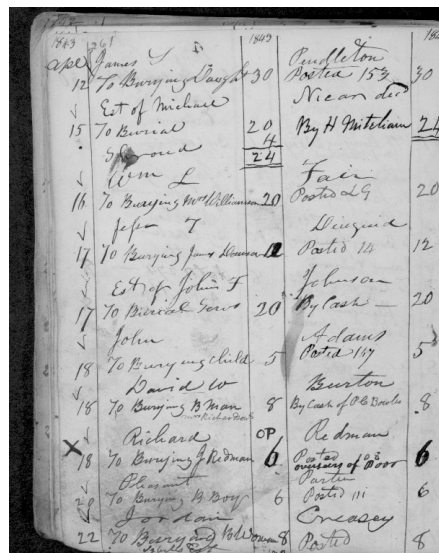 1843 261 1843
Apl James T Pendleton
12 To Burying Daught 30 Posted 153 30
Est of Michael Nican decd
15 To Burial 20 By H Mitcham 24
Shroud 4
24
Wm L Fair
16 To Burying Mrs Williamson 20 Posted 29 20
Jesse T
17 To Burying James 12 Posted 14 12
Est of John F Johnson
17 To Burial Serv 20 By Cash 20
John Adams
18 To Burying Child 5 Posted 157 5
David W Burton
18 To Burying B Man 8 By Cash of 8
Richard OP Redman
18 To Burying J Redman 6 Posted 6
overseers of Poor
Pleasant
20 To Burying B Boy 6 Posted 111 6
Jordan Creasey
22 To Burying B Woman 8 Posted 8